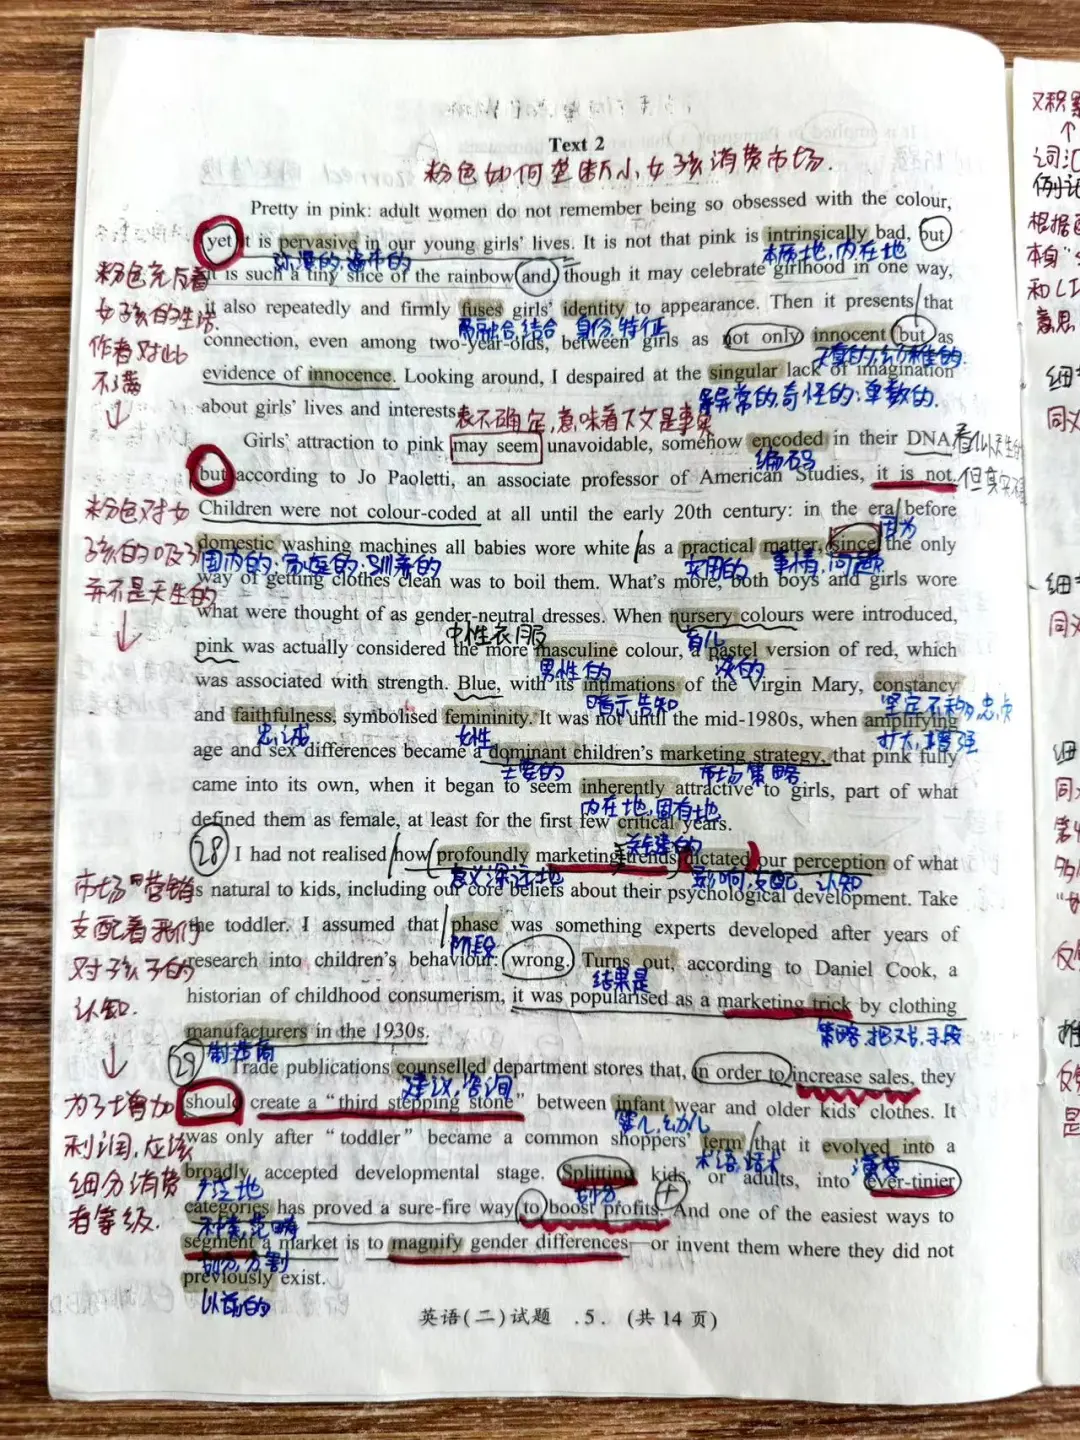 Text 2
粉色如何垄断小女孩消费市场.
Pretty in pink: adult women do not remember being so obsessed with the colour,
yet it is pervasive in our young girls' lives. It is not that pink is intrinsically bad, but
弥漫的,遍布的
本质地,内在地
粉色充斥着
女孩的生活.
作者对此
不满
it is such a tiny slice of the rainbow and, though it may celebrate girlhood in one way,
it also repeatedly and firmly fuses girls' identity to appearance. Then it presents that
融合,结合
身份,特征
connection, even among two-year-olds, between girls as not only innocent but as
天真的,幼稚的.
evidence of innocence. Looking around, I despaired at the singular lack of imagination
异常的,奇怪的;单数的.
about girls' lives and interests.
表不确定,意味着下文是事实
Girls' attraction to pink may seem unavoidable, somehow encoded in their DNA,
编码
看似天生的
but according to Jo Paoletti, an associate professor of American Studies, it is not.
粉色对女
孩的吸引
并不是天生的
Children were not colour-coded at all until the early 20th century: in the era before
因为
domestic washing machines all babies wore white as a practical matter, since the only
国内的;家庭的;驯养的
实用的
事情,问题
way of getting clothes clean was to boil them. What's more, both boys and girls wore
what were thought of as gender-neutral dresses. When nursery colours were introduced,
中性衣服
育儿
pink was actually considered the more masculine colour, a pastel version of red, which
男性的
淡的
was associated with strength. Blue, with its intimations of the Virgin Mary, constancy
暗示告知
坚定不移,忠贞
and faithfulness, symbolised femininity. It was not until the mid-1980s, when amplifying
忠诚
女性
扩大,增强
age and sex differences became a dominant children's marketing strategy, that pink fully
主要的
市场策略
came into its own, when it began to seem inherently attractive to girls, part of what
内在地,固有地
defined them as female, at least for the first few critical years.
关键的
28
I had not realised how profoundly marketing trends dictated our perception of what
意义深远地
影响,支配
认知
市场营销
支配着我们
对孩子的
认知.
is natural to kids, including our core beliefs about their psychological development. Take
the toddler. I assumed that phase was something experts developed after years of
阶段
research into children's behaviour: wrong. Turns out, according to Daniel Cook, a
结果是
historian of childhood consumerism, it was popularised as a marketing trick by clothing
策略,把戏,手段
manufacturers in the 1930s.
制造商
29
Trade publications counselled department stores that, in order to increase sales, they
建议,咨询
为了增加
利润,应该
细分消费
者等级.
should create a "third stepping stone" between infant wear and older kids' clothes. It
婴儿,幼儿
was only after "toddler" became a common shoppers' term that it evolved into a
术语,话术
演变
broadly accepted developmental stage. Splitting kids, or adults, into ever-tinier
广泛地
划分
categories has proved a sure-fire way to boost profits. And one of the easiest ways to
种类,范畴
segment a market is to magnify gender differences—or invent them where they did not
划分,分割
previously exist.
以前的
英语(二)试题 .5. (共14页)